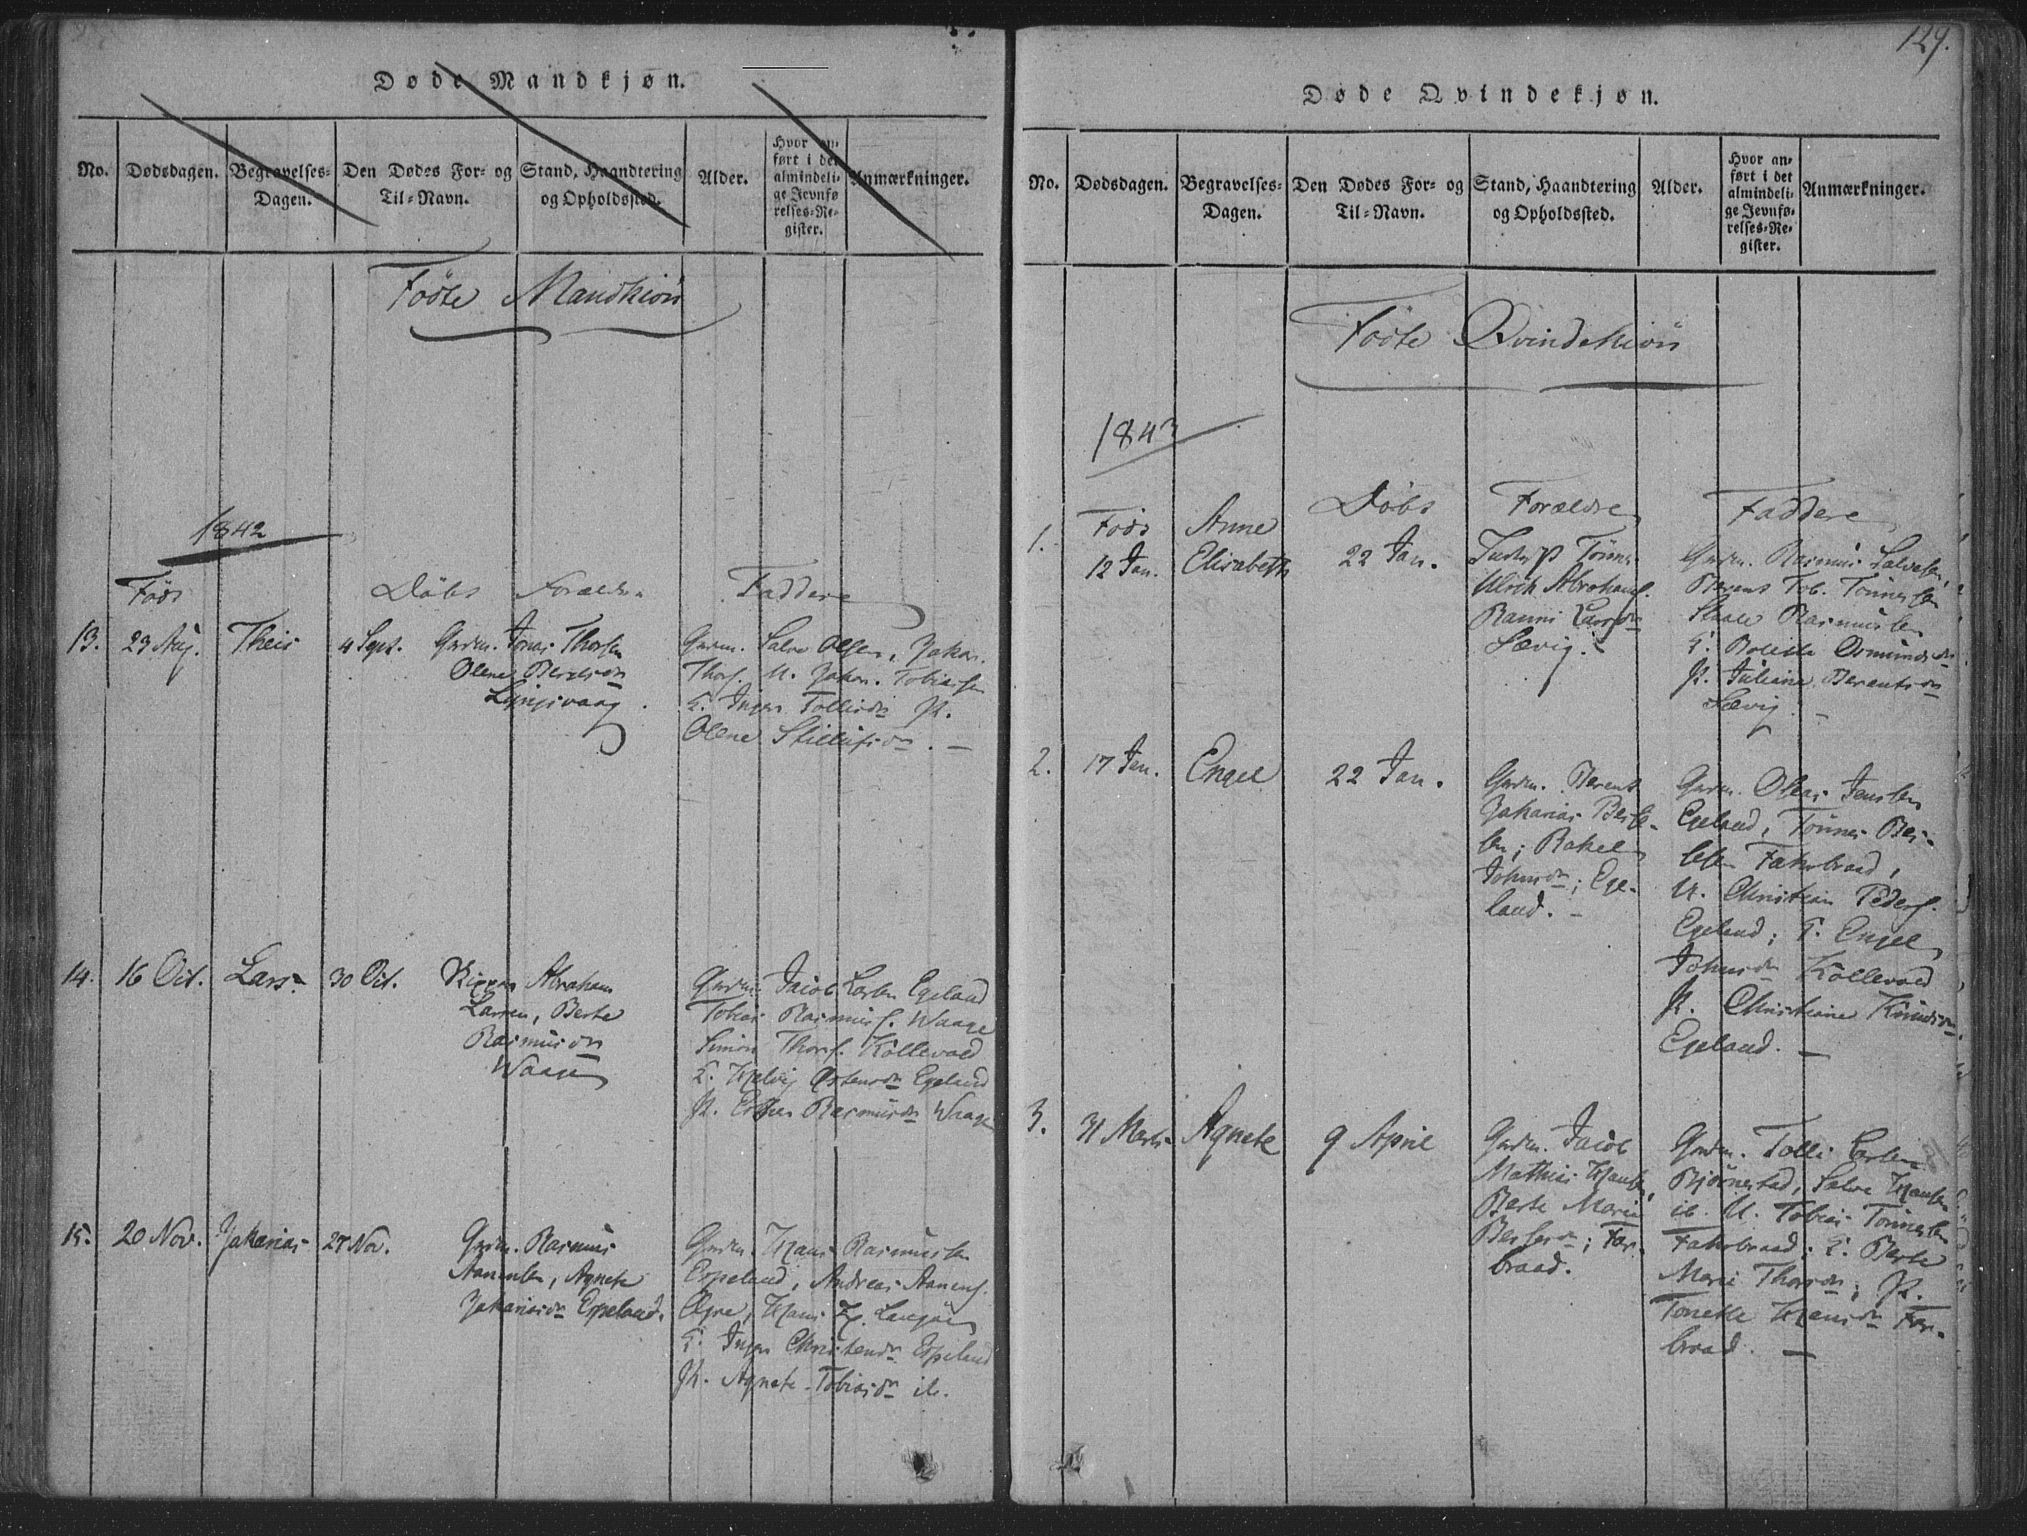 Døde Mandkjøn.
No.
Dødsdagen.
Begravelses-
Dagen.
Den Dødes For- og
Til-Navn.
Stand, Haandtering
og Opholdssted.
Alder.
Hvor an-
ført i det
almindeli-
ge Jevnfø
relses-Re-
gister.
Anmærkninger.
Födte Mandkiön
1842
Föds
Döbs
Forældre
Faddere
13.
23 Aug.
Theis
4 Sept.
Gmdm. Jonas Thorsen
Olene
Lyngsvaag.
Gmdm. Salve Olsen, Zakar.
Thors. U. Zakar. Tobiassen
G. Inger Tollisdn P.
Olene
14.
16 Oct.
Lars
30 Oct.
Abraham
Larsen, Berte
Rasmusdn
Waage
Gmdm. Jacob Larsen Egeland
Tobias Rasmuss. Waage
Simon Thors. Kollevold
G. Helvig Östensdn Egeland
P. Rasmusdn Waage
15.
20 Nov.
Zakarias
27 Nov.
Gmdm. Rasmus
Aanensen, Agnete
Zakariasdn Espeland.
Gmdm. Hans Rasmussen
Espeland, Andreas Aanens.
Hans
G. Inger Christensdn Espeland
P. Agnete Tobiasdn ib.
129.
Døde Qvindekjøn.
No.
Dødsdagen.
Begravelses-
Dagen.
Den Dødes For- og
Til-Navn.
Stand, Haandtering
og Opholdssted.
Alder.
Hvor an-
ført i det
almindeli-
ge Jevnfø-
relses-Re-
gister.
Anmærkninger.
Födte Qvindekiön
1843
Föds
Döbs
Forældre
Faddere
1.
12 Jan.
Anne
Elisabeth
22 Jan.
Tönnes
Ulrik Abrahams.
Larsdn
Sævig.
Gmdm. Rasmus Salvesen,
Berent Tob. Tönnessen
Rasmussen
G. Bolette Osmundsdn
P. Juliane Berentsdn
Sævig.
2.
17 Jan.
Engel
22 Jan.
Gmdm. Berent
Zakarias Berte-
sen; Rakel
Johnsdn; Ege-
land.
Gmdm. Olias Jensen
Egeland, Tönnes Ber-
tesen Fahrbraad,
U. Christian Peders.
Egeland; G. Engel
Johnsdn Kollevold
P. Christiane Knudsdn
Egeland.
3.
31 Marts
Agnete
9 April
Gmdm. Jacob
Mathias Hansen,
Berte Marie
Bertesdn; Far-
braad.
Gmdm. Tolli
Björnestad, Salve Hansen
ib. U. Tobias Tönnessen
Fahrbraad; G. Berte
Marie Thorsdn; P.
Tonette Hansdn Far-
braad.